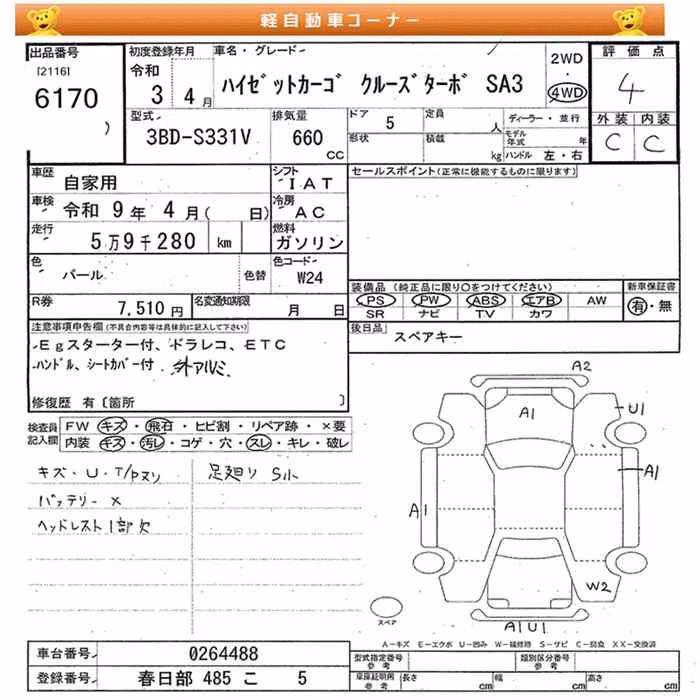 軽自動車コーナー
出品番号
[2116]
6170
初度登録年月
令和
3 4月
車名・グレード
ハイゼットカーゴ クルーズターボ SA3
2WD
・
4WD
評価点
4
外装 内装
C C
型式
3BD-S331V
排気量
660
CC
ドア 5
形状
定員
人
積載
kg
ディーラー・並行
モデル年式 年
ハンドル 左・右
車歴
自家用
シフト
IAT
車検 令和 9年 4月( 日)
冷房
AC
走行
5万9千280 km
燃料
ガソリン
色
パール
色替
色コード
W24
R券
7,510円
名変通知期限
月 日
セールスポイント(正常に機能するものに限ります)
装備品 (純正品に限り○をつけてください)
PS PW ABS エアB AW
SR ナビ TV カワ
新車保証書
有・無
後日品
スペアキー
注意事項申告欄(不具合内容等は具体的に記入して下さい)
Egスターター付、ドラレコ、ETC
ハンドル、シートカバー付 外アルミ
修復歴 有〔箇所 〕
検査員記入欄
FW キズ・飛石・ヒビ割・リペア跡・×要
内装 キズ・汚レ・コゲ・穴・スレ・キレ・破レ
キズ・U・T/Pヌリ
足廻りSル
バッテリー×
ヘッドレスト1部欠
A2
A1
U1
A1
A1
W2
A1U1
スペア
A-キズ E-エクボ U-凹み W-補修跡 S-サビ C-腐食 XX-交換済
車台番号 0264488
登録番号 春日部 485 こ 5
型式指定番号
参考
類別区分番号
参考
車庫証明用
参考
長さ cm
幅 cm
高さ cm